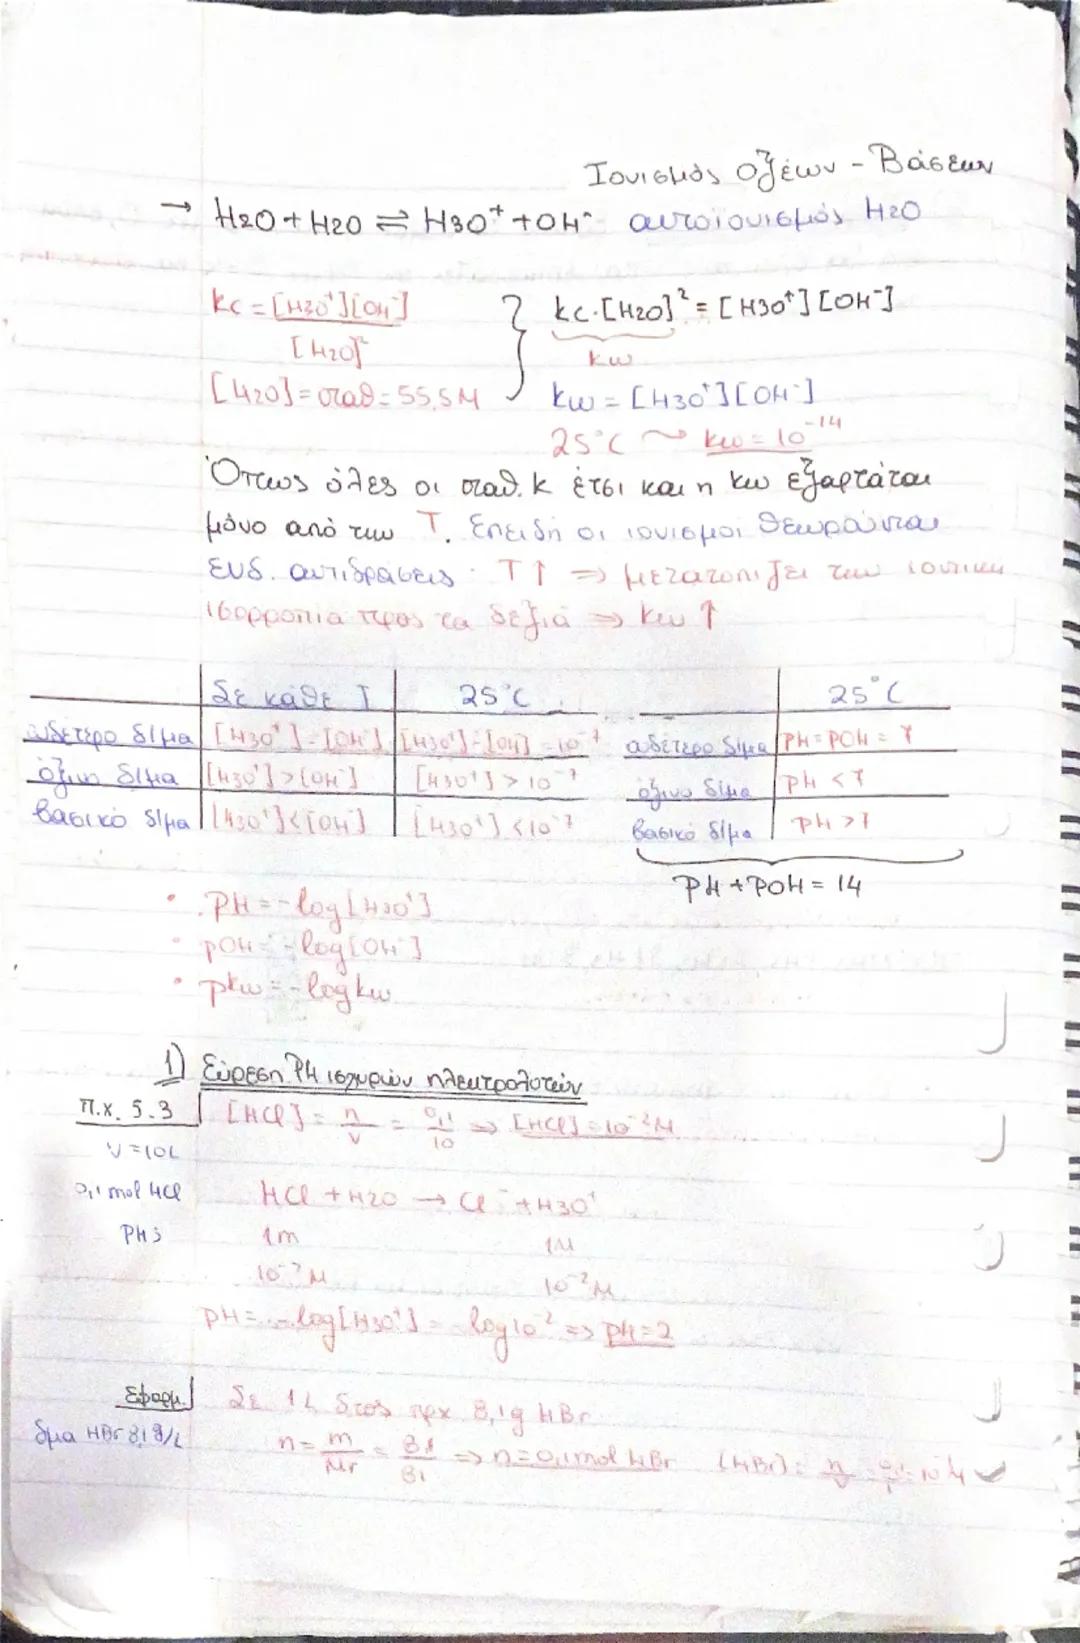 Ιονισμός οξέων - Βάσεων
→ H2O + H2O ⇌ H3O⁺ + OH⁻ αυτοϊονισμός H2O
kc = [H3O⁺][OH⁻] / [H2O]² } kc·[H2O]² = [H3O⁺][OH⁻]
kw
[H2O] = σταθ = 55,5M kw = [H3O⁺][OH⁻]
25°C ~ kw = 10⁻¹⁴
Όπως όλες οι σταθ. k έτσι και η kw εξαρτάται
μόνο από την T. Επειδή οι ιονισμοί θεωρούνται
ενδ. αντιδράσεις T↑ ⇒ μετατοπίζει την ιοντική
ισορροπία προς τα δεξιά ⇒ kw ↑
Σε κάθε T 25°C
ουδέτερο δ/μα [H3O⁺] = [OH⁻] [H3O⁺] = [OH⁻] = 10⁻⁷
όξινο δ/μα [H3O⁺] > [OH⁻] [H3O⁺] > 10⁻⁷
βασικό δ/μα [H3O⁺] < [OH⁻] [H3O⁺] < 10⁻⁷
25°C
ουδέτερο δ/μα PH = POH = 7
όξινο δ/μα PH < 7
βασικό δ/μα PH > 7
PH + POH = 14
• PH = -log[H3O⁺]
• pOH = -log[OH⁻]
• pkw = -logkw
1) Εύρεση PH ισχυρών ηλεκτρολυτών
π.χ. 5.3 [HCl] = n/V = 0,1/10 ⇒ [HCl] = 10⁻²M
V = 10L
0,1 mol HCl HCl + H2O → Cl⁻ + H3O⁺
PH; 1M 1M
10⁻²M 10⁻²M
pH = -log[H3O⁺] = -log10⁻² ⇒ pH = 2
Εφαρμ. Σε 1L δ/τος πρχ 8,1g HBr
δμα HBr 8,1g/L n = m/Mr = 8,1/81 ⇒ n = 0,1mol HBr [HBr] = n/V = 0,1/1 = 10⁻¹